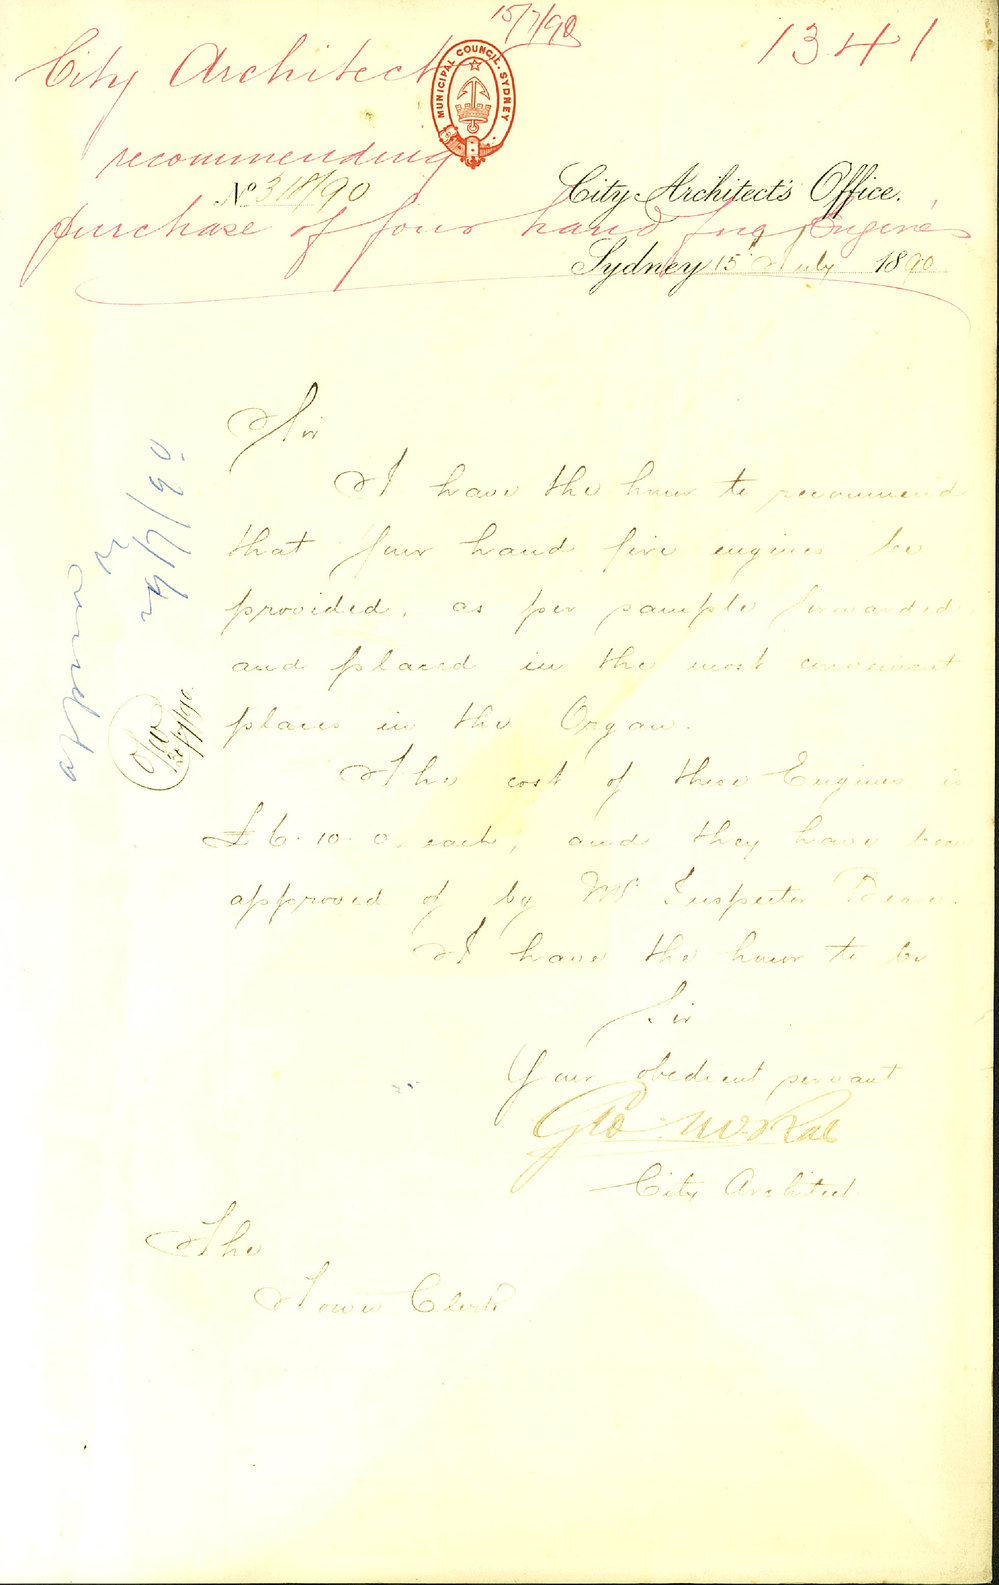 15/7/90
1341
City Architect
MUNICIPAL COUNCIL. SYDNEY
recommending
No 318/90
City Architect's Office.
purchase of four hand Engines
Sydney 15 July 1890
Sir
I have the honor to recommend
that four hand fire engines be
provided, as per sample forwarded
and placed in the most convenient
places in the Organ.
The cost of these Engines is
£6.10.0. each, and they have been
approved of by Mr Inspector
I have the honor to be
Sir
Your obedient servant
Geo McRae
City Architect
The
Town Clerk
approved
/7/90